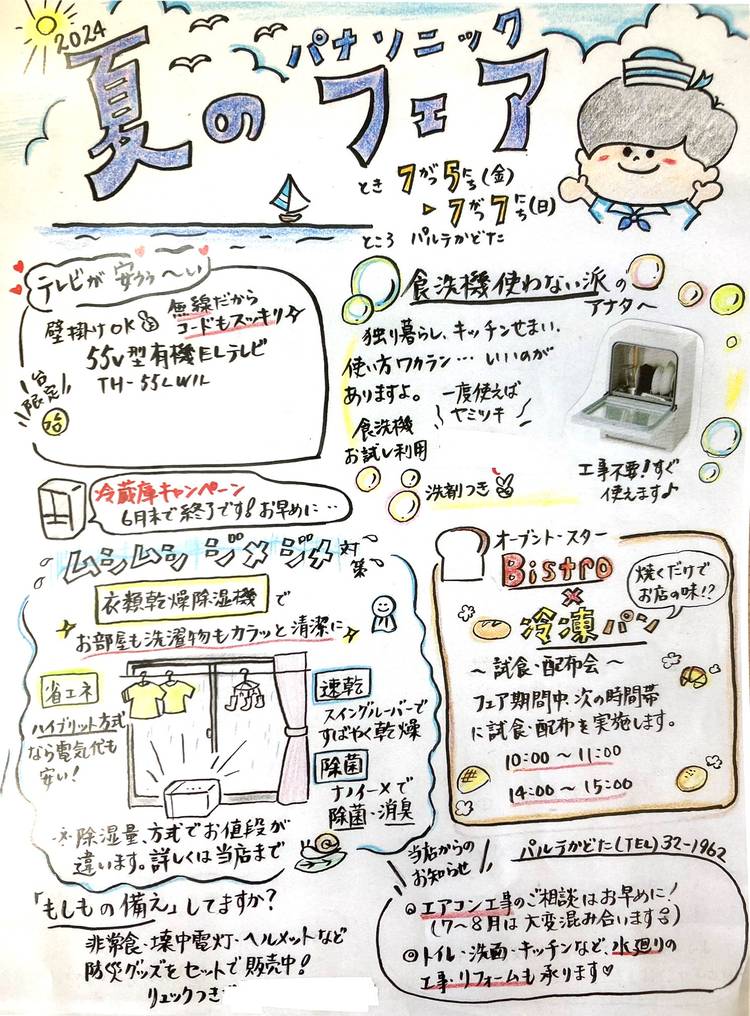 2024
パナソニック
夏のフェア
とき 7がつ5にち(金)
▶7がつ7にち(日)
ところ パルテかどた
テレビが安うぅ〜い
壁掛けOK
無線だから
コードもスッキリ
55v型有機ELテレビ
TH-55LW1L
1台
限定
食洗機使わない派の
アナタへ
独り暮らし、キッチンせまい、
使い方ワカラン…いいのが
ありますよ。
一度使えば
ヤミツキ
食洗機
お試し利用
洗剤つき
工事不要!すぐ
使えます♪
冷蔵庫キャンペーン
6月末で終了です!お早めに…
ムシムシ ジメジメ対策
衣類乾燥除湿機で
お部屋も洗濯物もカラッと清潔に
省エネ
ハイブリット方式
なら電気代も
安い!
速乾
スイングルーバーで
すばやく乾燥
除菌
ナノイーXで
除菌・消臭
除湿量、方式でお値段が
違います。詳しくは当店まで
オーブントースター
Bistro
×
冷凍パン
焼くだけで
お店の味!?
〜試食・配布会〜
フェア期間中、次の時間帯
に試食・配布を実施します。
10:00〜11:00
14:00〜15:00
「もしもの備え」してますか?
非常食・壊中電灯・ヘルメットなど
防災グッズをセットで販売中!
リュックつき
当店からの
お知らせ
パルテかどた(TEL)32-1962
◎エアコン工事のご相談はお早めに!
(7〜8月は大変混み合います
◎トイレ・洗面・キッチンなど、水廻りの
工事・リフォームも承ります♡